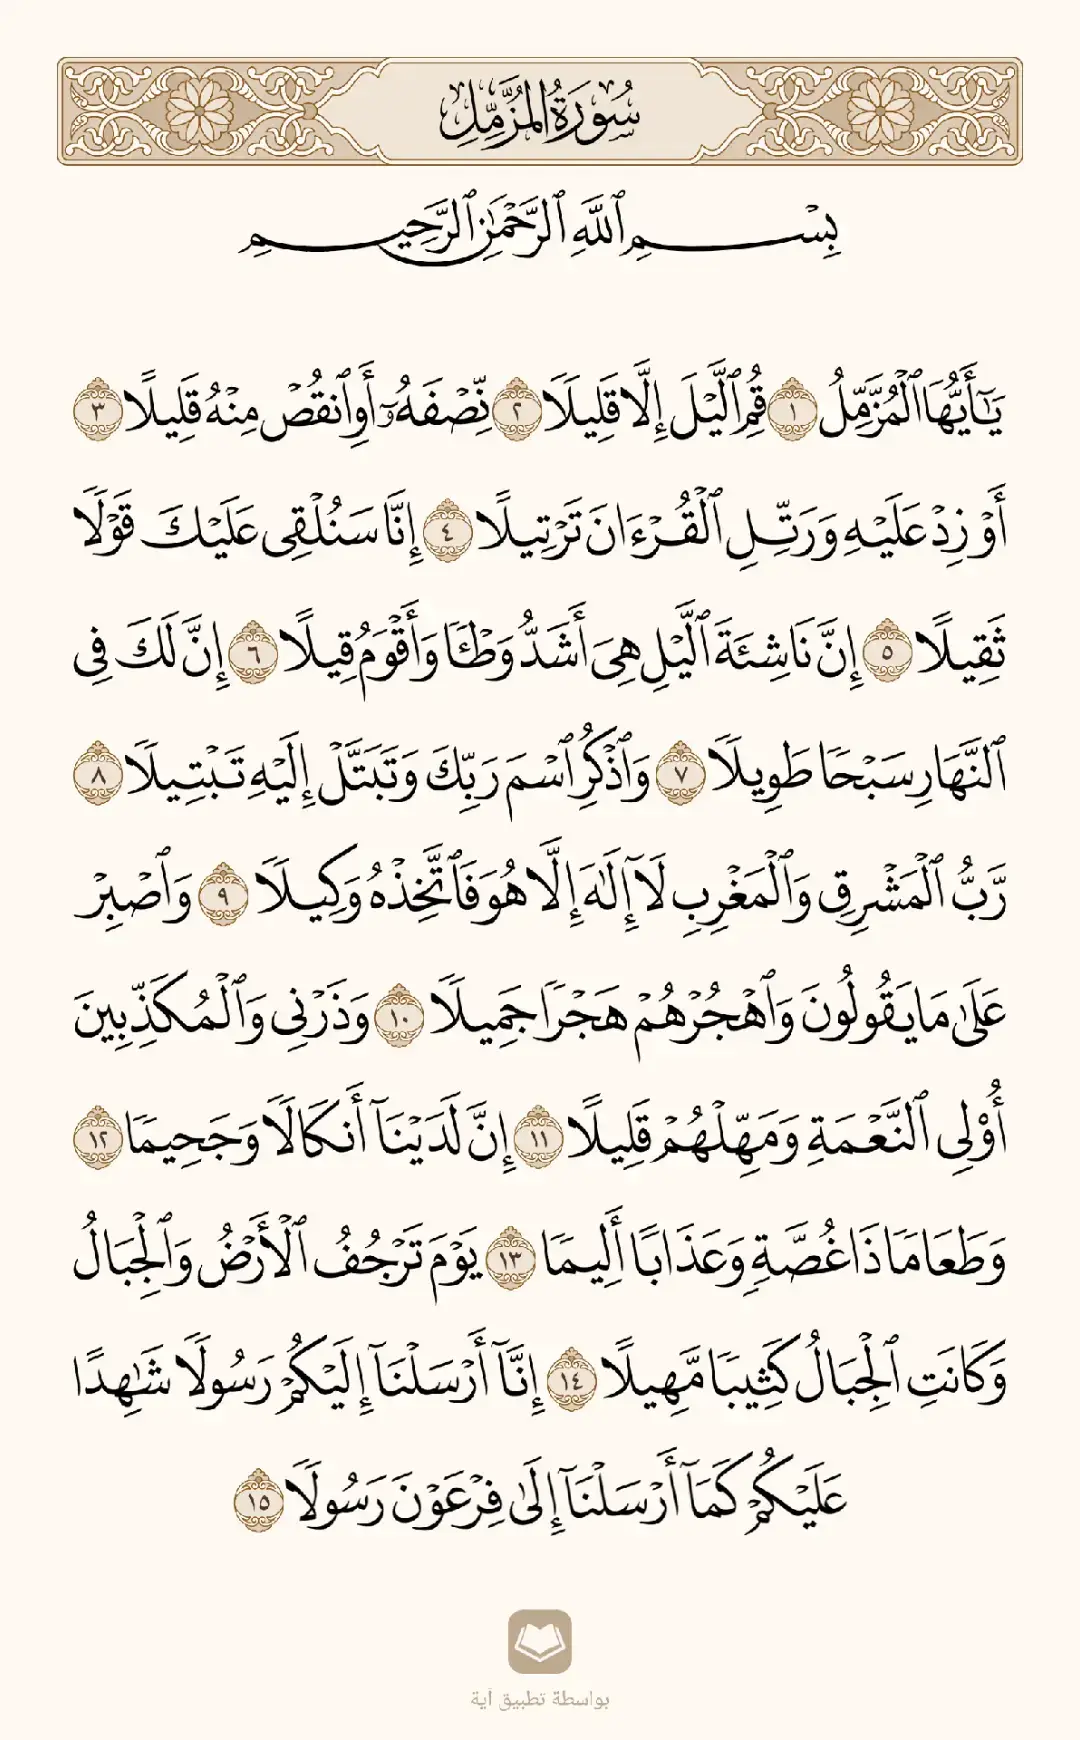 سُورَةُ الْمُزَّمِّلِ
بِسْمِ ٱللَّهِ ٱلرَّحْمَٰنِ ٱلرَّحِيمِ
يَـٰٓأَيُّهَا ٱلْمُزَّمِّلُ ١ قُمِ ٱلَّيْلَ إِلَّا قَلِيلًا ٢ نِّصْفَهُۥٓ أَوِ ٱنقُصْ مِنْهُ قَلِيلًا ٣
أَوْ زِدْ عَلَيْهِ وَرَتِّلِ ٱلْقُرْءَانَ تَرْتِيلًا ٤ إِنَّا سَنُلْقِى عَلَيْكَ قَوْلًا
ثَقِيلًا ٥ إِنَّ نَاشِئَةَ ٱلَّيْلِ هِىَ أَشَدُّ وَطْـًٔا وَأَقْوَمُ قِيلًا ٦ إِنَّ لَكَ فِى
ٱلنَّهَارِ سَبْحًا طَوِيلًا ٧ وَٱذْكُرِ ٱسْمَ رَبِّكَ وَتَبَتَّلْ إِلَيْهِ تَبْتِيلًا ٨
رَّبُّ ٱلْمَشْرِقِ وَٱلْمَغْرِبِ لَآ إِلَـٰهَ إِلَّا هُوَ فَٱتَّخِذْهُ وَكِيلًا ٩ وَٱصْبِرْ
عَلَىٰ مَا يَقُولُونَ وَٱهْجُرْهُمْ هَجْرًا جَمِيلًا ١٠ وَذَرْنِى وَٱلْمُكَذِّبِينَ
أُو۟لِى ٱلنَّعْمَةِ وَمَهِّلْهُمْ قَلِيلًا ١١ إِنَّ لَدَيْنَآ أَنكَالًا وَجَحِيمًا ١٢
وَطَعَامًا ذَا غُصَّةٍ وَعَذَابًا أَلِيمًا ١٣ يَوْمَ تَرْجُفُ ٱلْأَرْضُ وَٱلْجِبَالُ
وَكَانَتِ ٱلْجِبَالُ كَثِيبًا مَّهِيلًا ١٤ إِنَّآ أَرْسَلْنَآ إِلَيْكُمْ رَسُولًا شَـٰهِدًا
عَلَيْكُمْ كَمَآ أَرْسَلْنَآ إِلَىٰ فِرْعَوْنَ رَسُولًا ١٥
بواسطة تطبيق آية